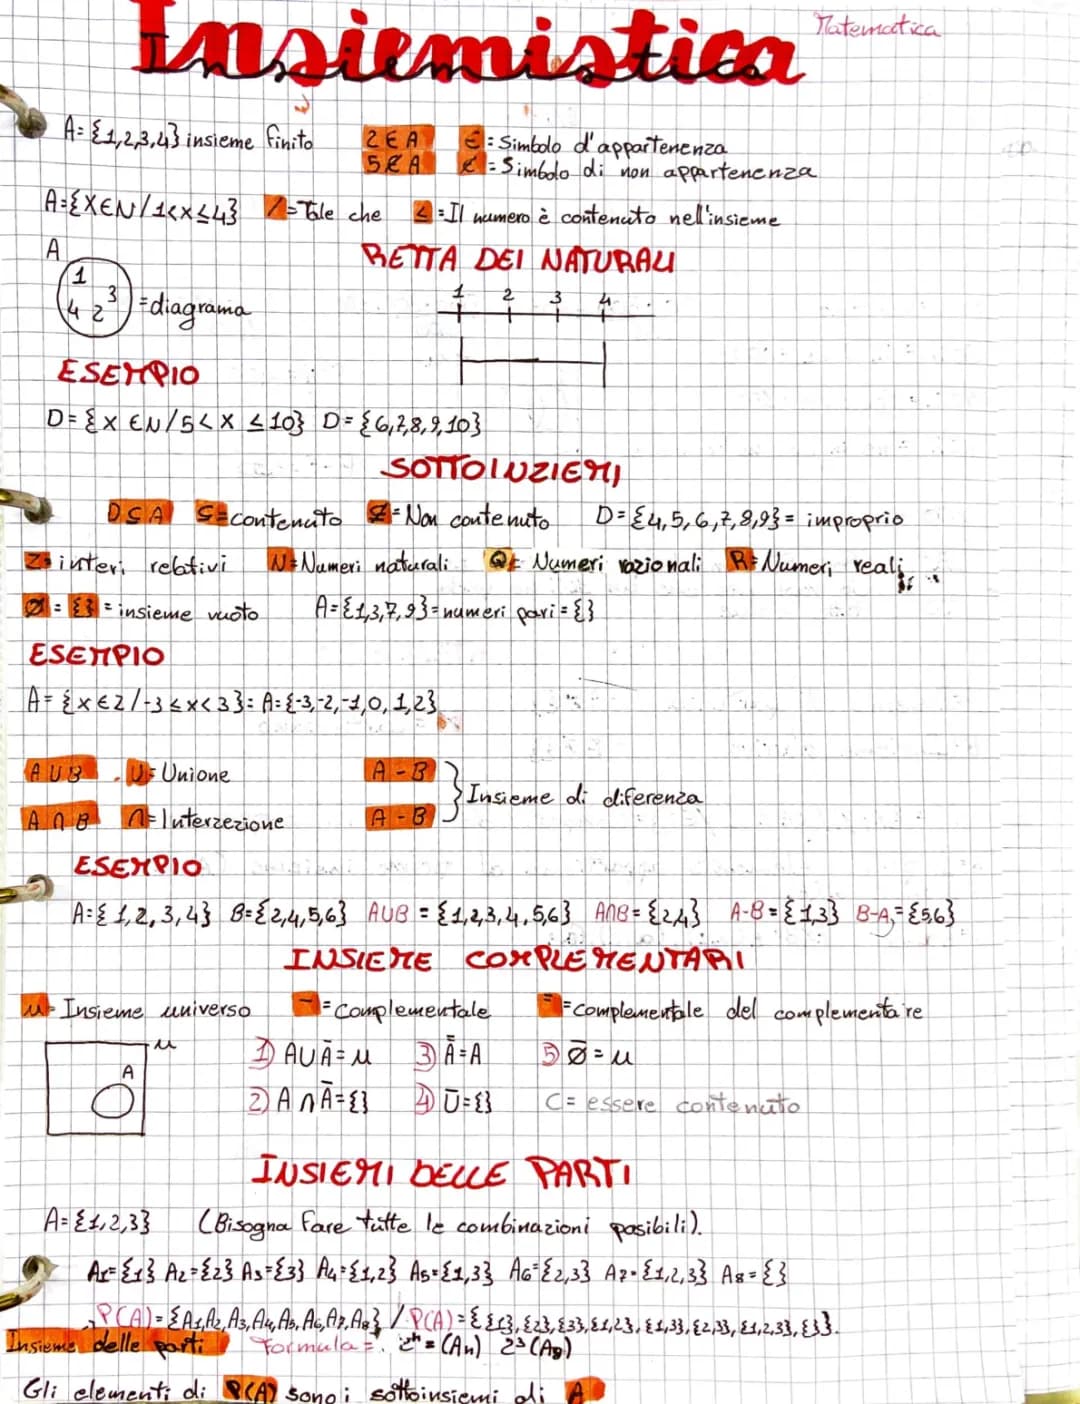 Insiemistica
Matematica
A={1,2,3,4} insieme finito 2 ∈ A ∈: Simbolo d'appartenenza
5 ∉ A ∉ = Simbolo di non appartenenza
A={X∈N/1<x≤4} /=Tale che ≤=Il numero è contenuto nell'insieme
A RETTA DEI NATURALI
1 3 4 2 =diagrama
1 2 3 4
ESEMPIO
D={x ∈N/5<x ≤10} D={6,7,8,9,10}
SOTTOINZIEMI
D⊆A ⊆=contenuto ⊈=Non contenuto D={4,5,6,7,8,9}= improprio
Z=interi relativi N=Numeri naturali Q= Numeri razionali R=Numeri reali
Ø = {} = insieme vuoto A={1,3,7,9}=numeri pari={}
ESEMPIO
A= {x∈Z/-3≤x<3}= A={-3,-2,-1,0,1,2}
A∪B ∪=Unione A-B
Insieme di diferenza
A∩B ∩=Interzezione A-B
ESEMPIO
A={1,2,3,4} B={2,4,5,6} A∪B = {1,2,3,4,5,6} A∩B={2,4} A-B={1,3} B-A={5,6}
INSIEME COMPLEMENTARI
μ= Insieme universo ‾=complementale ‗=complementale del complementa're
μ 1) A∪Ā=μ 3) A̿=A 5) Ø̅=μ
A 2) A∩Ā={} 4) Ū={} C= essere contenuto
INSIEMI DELLE PARTI
A={1,2,3} (Bisogna fare tutte le combinazioni posibili).
A1={1} A2={2} A3={3} A4={1,2} A5={1,3} A6={2,3} A7={1,2,3} A8={}
P(A)={A1,A2,A3,A4,A5,A6,A7,A8} / P(A)={{1},{2},{3},{1,2},{1,3},{2,3},{1,2,3},{}}.
Insieme delle parti Formula=. 2ⁿ=(An) 2³(A8)
Gli elementi di P(A) sono i sottoinsiemi di A